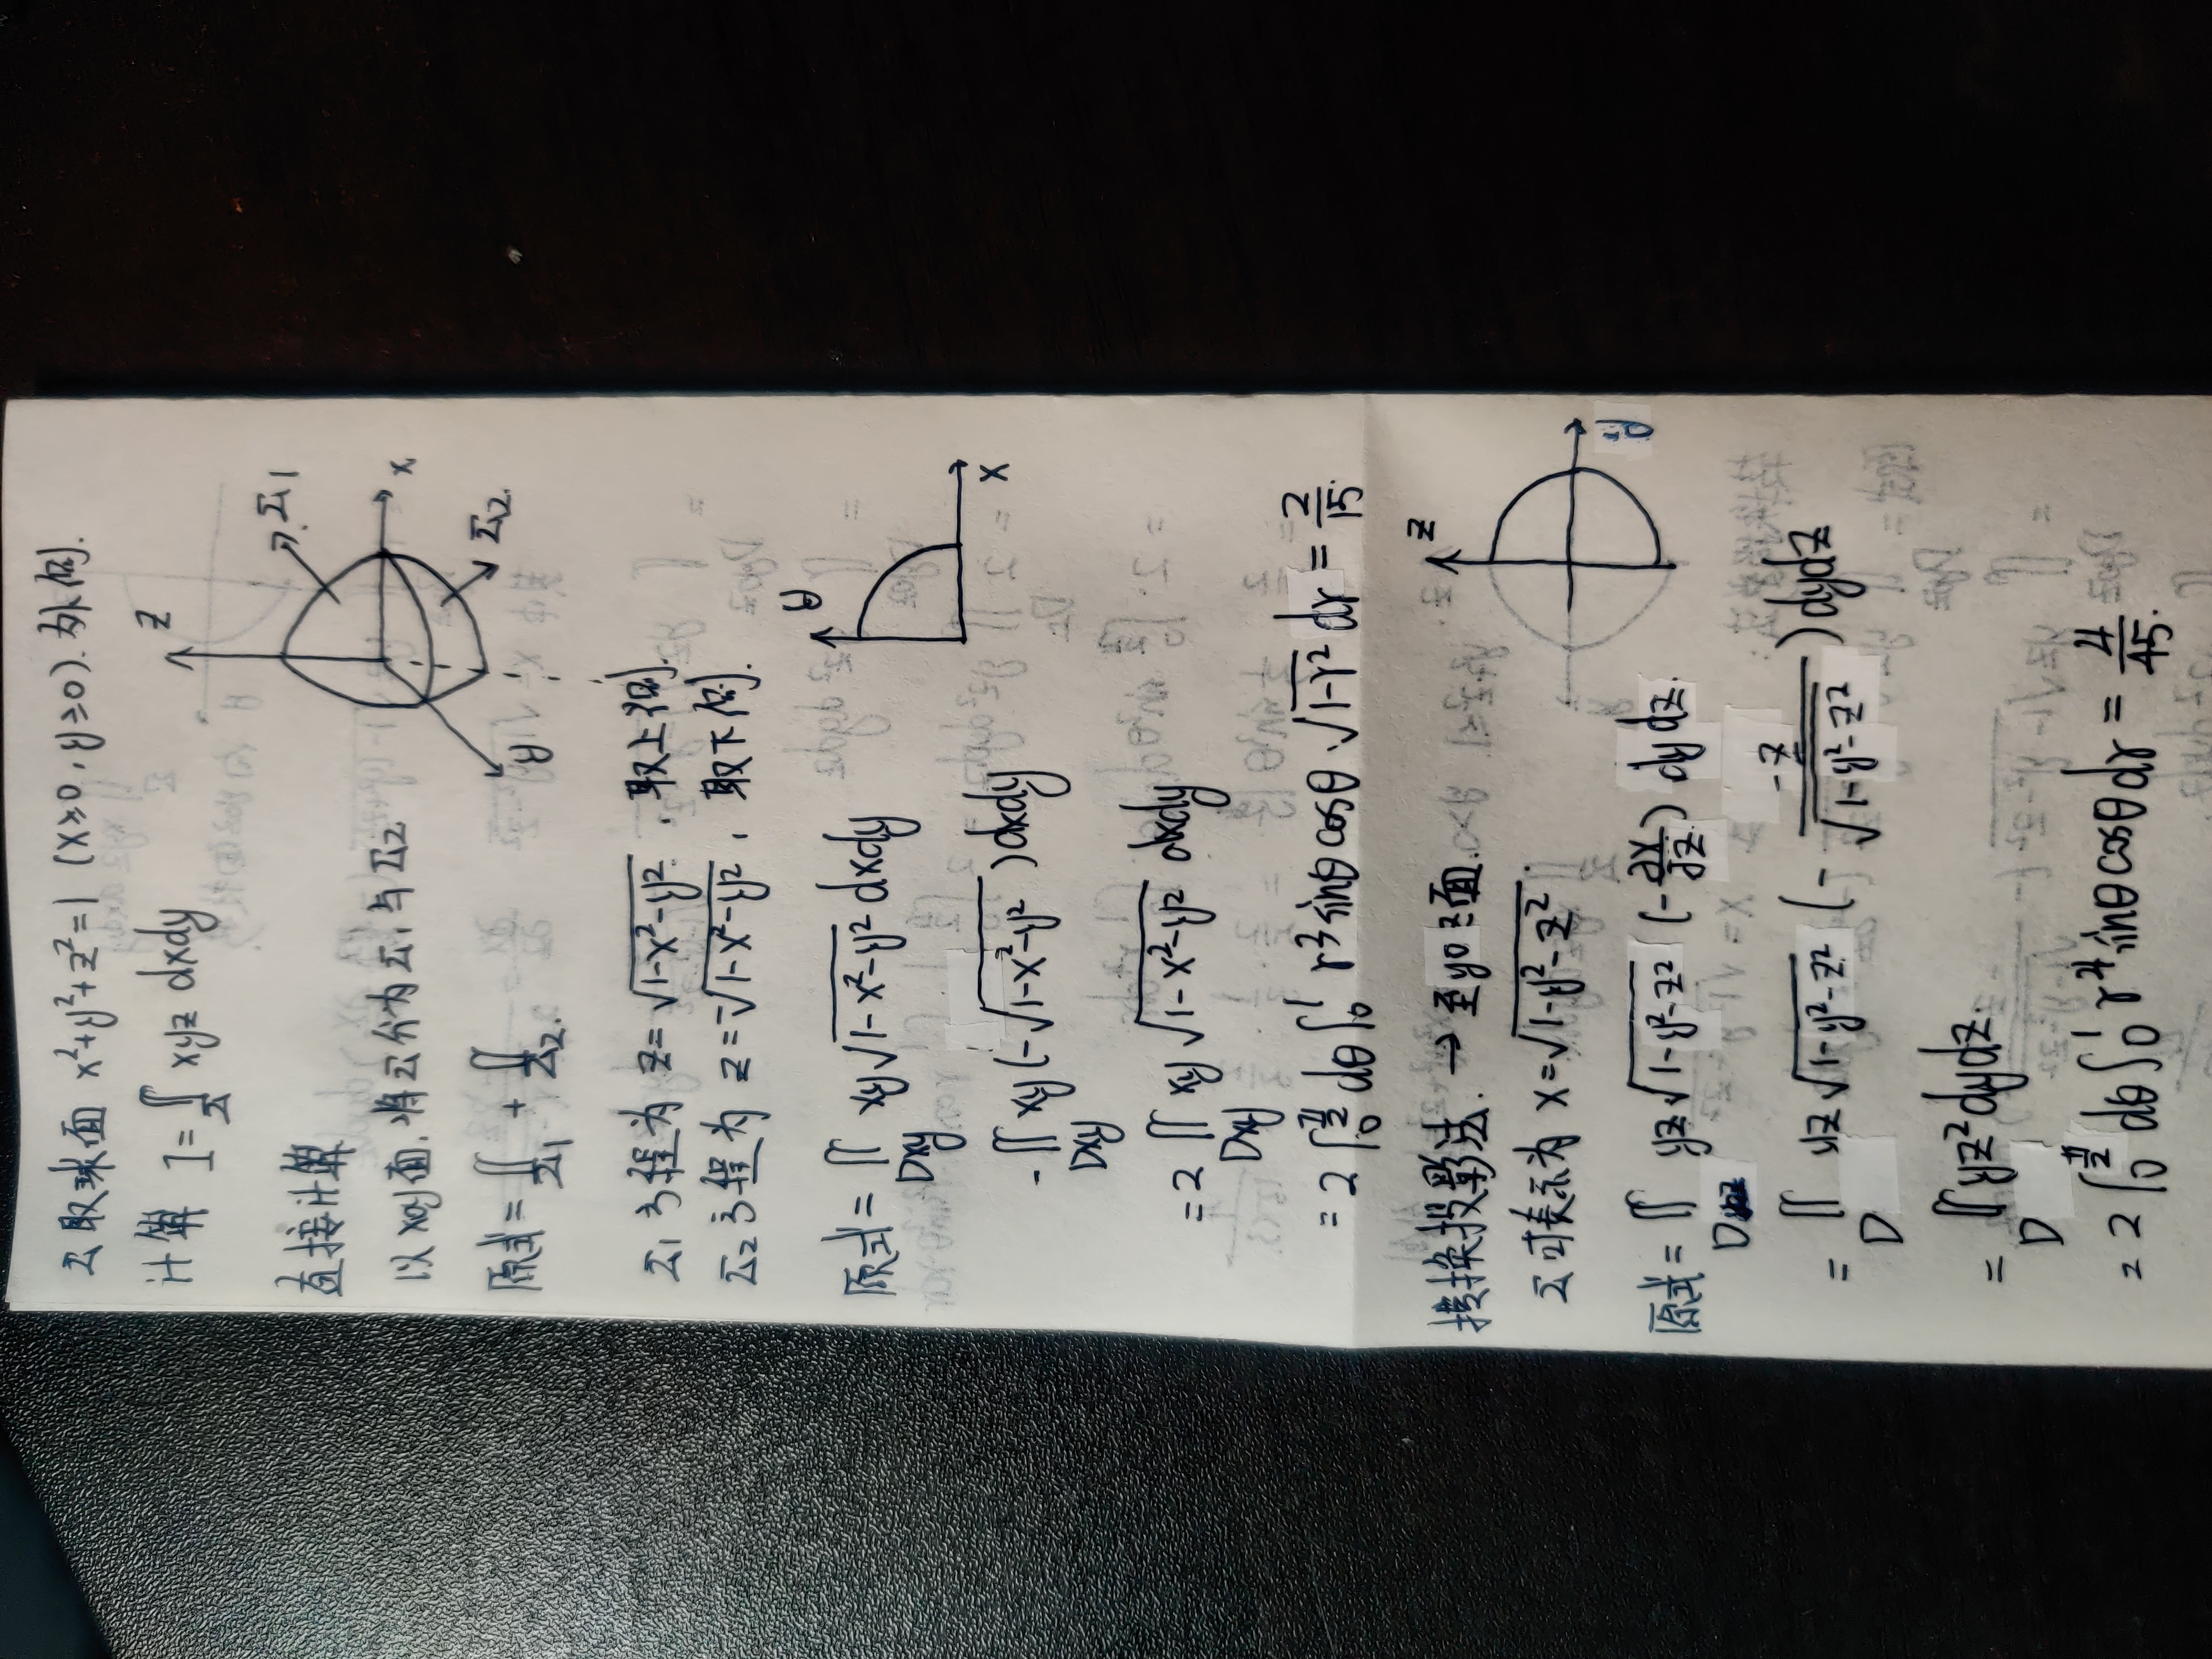 Σ取球面 x²+y²+z²=1 (x≥0, y≥0). 外侧.
计算 I=∬_Σ xyz dxdy
z
Σ1
x
Σ2
y
直接计算
以xoy面.将Σ分为Σ1与Σ2
原式=∬_Σ1 + ∬_Σ2.
Σ1方程为 z=√(1-x²-y²). 取上侧.
Σ2方程为 z=-√(1-x²-y²). 取下侧.
y
x
原式=∬_Dxy xy√(1-x²-y²) dxdy
-∬_Dxy xy(-√(1-x²-y²))dxdy
=2∬_Dxy xy√(1-x²-y²) dxdy
=2∫_0^(π/2) dθ∫_0^1 r³sinθcosθ·√(1-r²) dr=2/15.
转换投影法. → 至yoz面.
z
y
Σ可表示为 x=√(1-y²-z²).
原式=∬_D yz√(1-y²-z²) (-∂x/∂z) dydz.
=∬_D yz√(1-y²-z²) (- -z/√(1-y²-z²))dydz
=∬_D yz²dydz.
=2∫_0^(π/2) dθ∫_0^1 r⁴sinθcosθdr=4/45.